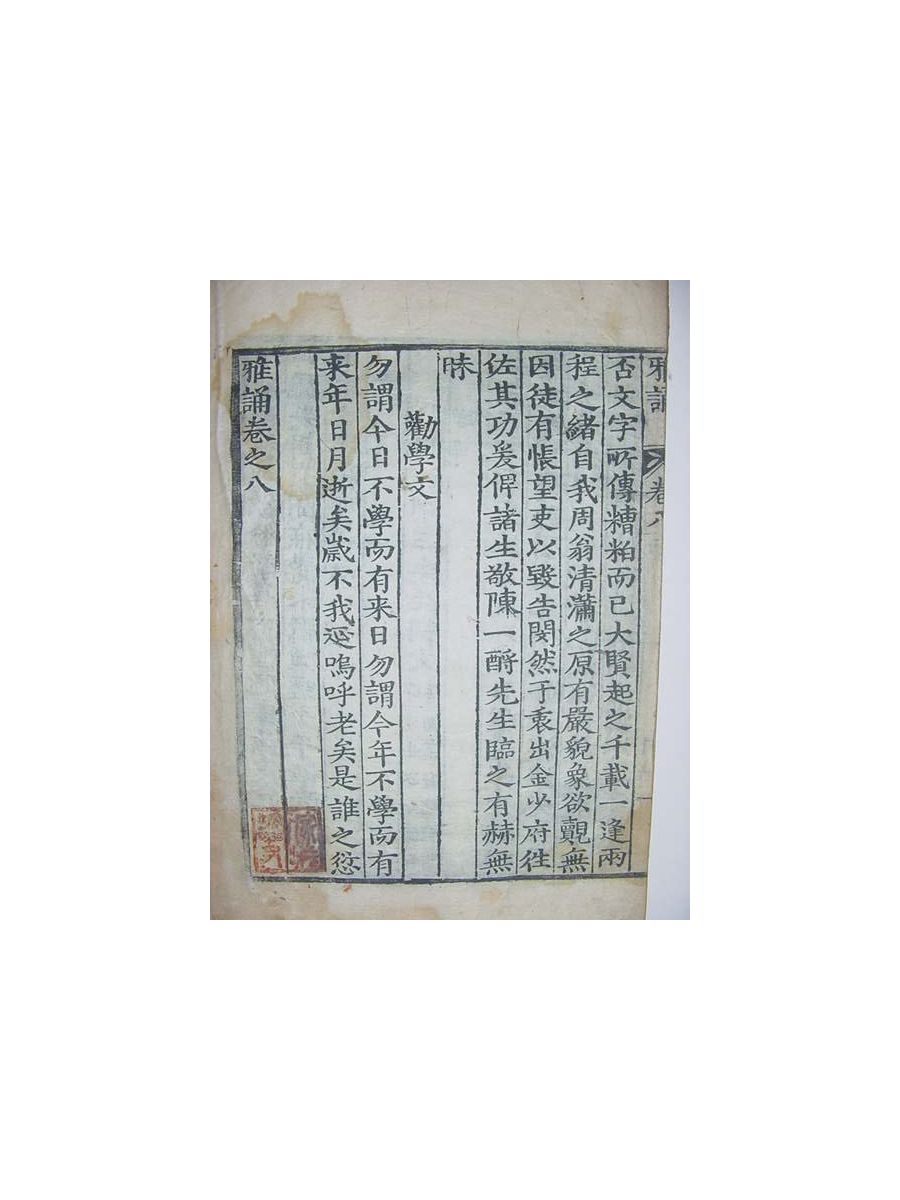 雅誦 卷八
否文字所傳糟粕而已大賢起之千載一逢兩
程之緒自我周翁清灕之原有嚴貌象欲覿無
因徒有悵望吏以毀告閔然于衷出金少府徃
佐其功爰俾諸生敬陳一酹先生臨之有赫無
昧
勸學文
勿謂今日不學而有来日勿謂今年不學而有
来年日月逝矣歲不我延嗚呼老矣是誰之愆
雅誦卷之八